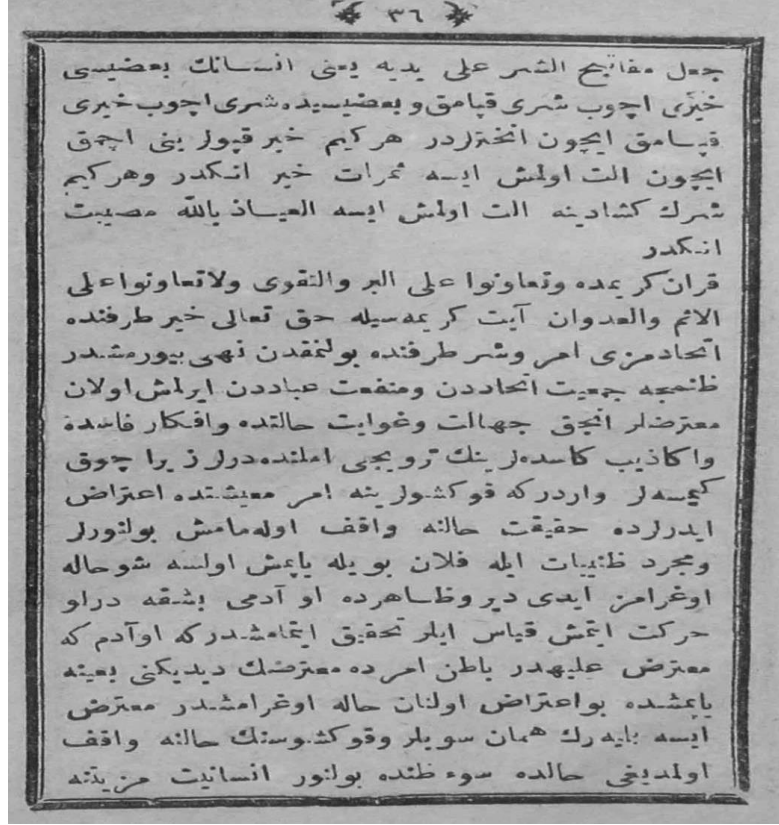 ٣٦
جعل مفاتيح الشر على يديه يعنى انسانك بعضيسى
خيرى اچوب شرى قپامق و بعضيسيده شرى اچوب خيرى
قپامق ايچون انختاردر هركيم خير قپولرينى اچمق
ايچون الت اولمش ايسه ثمرات خير انكدر وهركيم
شرك كشادينه الت اولمش ايسه العياذ بالله مصيبت
انكدر
قران كريمده وتعاونوا على البر والتقوى ولاتعاونوا على
الاثم والعدوان آيت كريمه سيله حق تعالى خير طرفنده
اتحادمزى امر وشر طرفنده بولنمقدن نهى بيورمشدر
ظنمجه جمعيت اتحاددن ومنفعت عباددن ايرلمش اولان
معترضلر انجق جهالت وغوايت حالتده وافكار فاسده
واكاذيب كاسده لرينك ترويجى املنده درلر زيرا چوق
كيمسه لر واردركه قوكشولرينه امر معيشتده اعتراض
ايدرلرده حقيقت حالنه واقف اوله مامش بولنورلر
ومجرد ظنيات ايله فلان بويله ياپمش اولسه شو حاله
اوغرامز ايدى دير وظاهرده او آدمى بشقه درلو
حركت ايتمش قياس ايلر تحقيق ايتمامشدركه اوآدم كه
معترض عليهدر باطن امرده معترضك ديديكنى بعينه
ياپمشده بواعتراض اولنان حاله اوغرامشدر معترض
ايسه بلميه رك همان سويلر وقوكشوسنك حالنه واقف
اولمديغى حالده سوء ظنده بولنور انسانيت مزيتنه